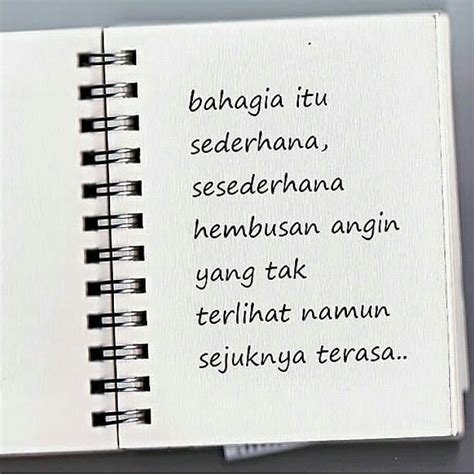 bahagia itu
sederhana,
sesederhana
hembusan angin
yang tak
terlihat namun
sejuknya terasa..